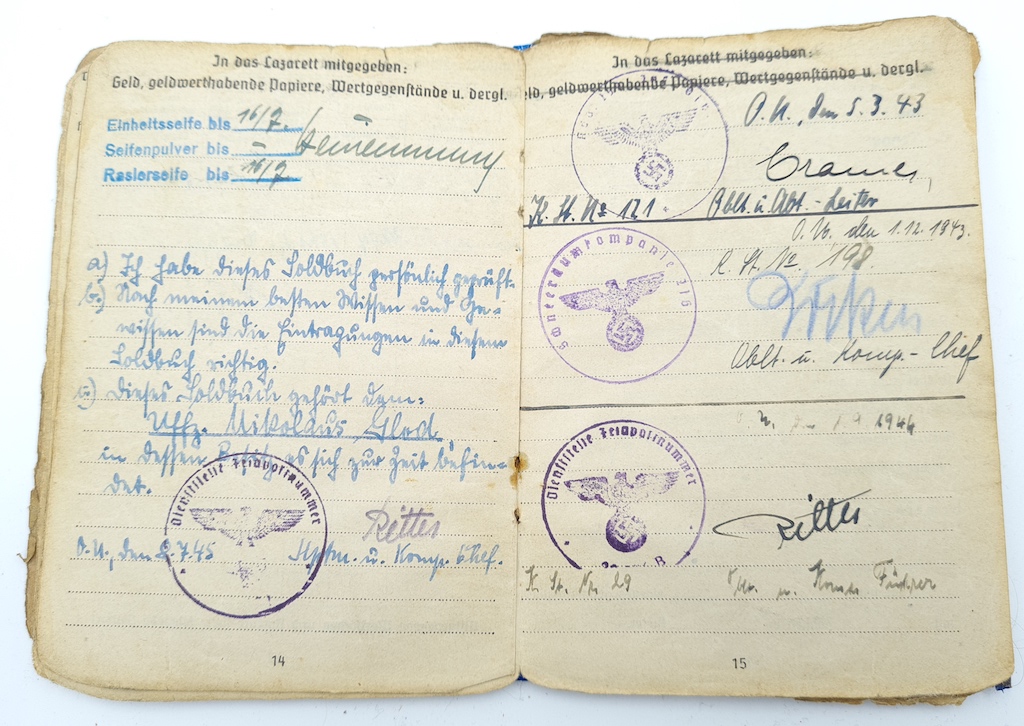 In das Lazarett mitgegeben:
Geld, geldwerthabende Papiere, Wertgegenstände u. dergl.
Einheitsseife bis 16/7.
Seifenpulver bis –
Rasierseife bis 16/7.
a) Ich habe dieses Soldbuch persönlich geprüft.
b.) Nach meinem besten Wissen und Ge-
wissen sind die Eintragungen in diesem
Soldbuch richtig.
c.) Dieses Soldbuch gehört dem:
Uffz. Nikolaus Glod
in dessen Besitz es sich zur Zeit befin-
det.
Dienststelle Feldpostnummer
Ritter
O.U., den 2.7.45 Hptm. u. Komp. Chef.
14
In das Lazarett mitgegeben:
Geld, geldwerthabende Papiere, Wertgegenstände u. dergl.
O.U., den 5.3.43
K. St. No 121 Oblt. u. Abt.-Leiter
O.U. den 1.12.1943.
K. St. No 198.
Panzerdumkompanie
Oblt. u. Komp.-Chef
1944
Dienststelle Feldpostnummer
B
Ritter
K. St. Nr. 29 u. Komp Führer
15